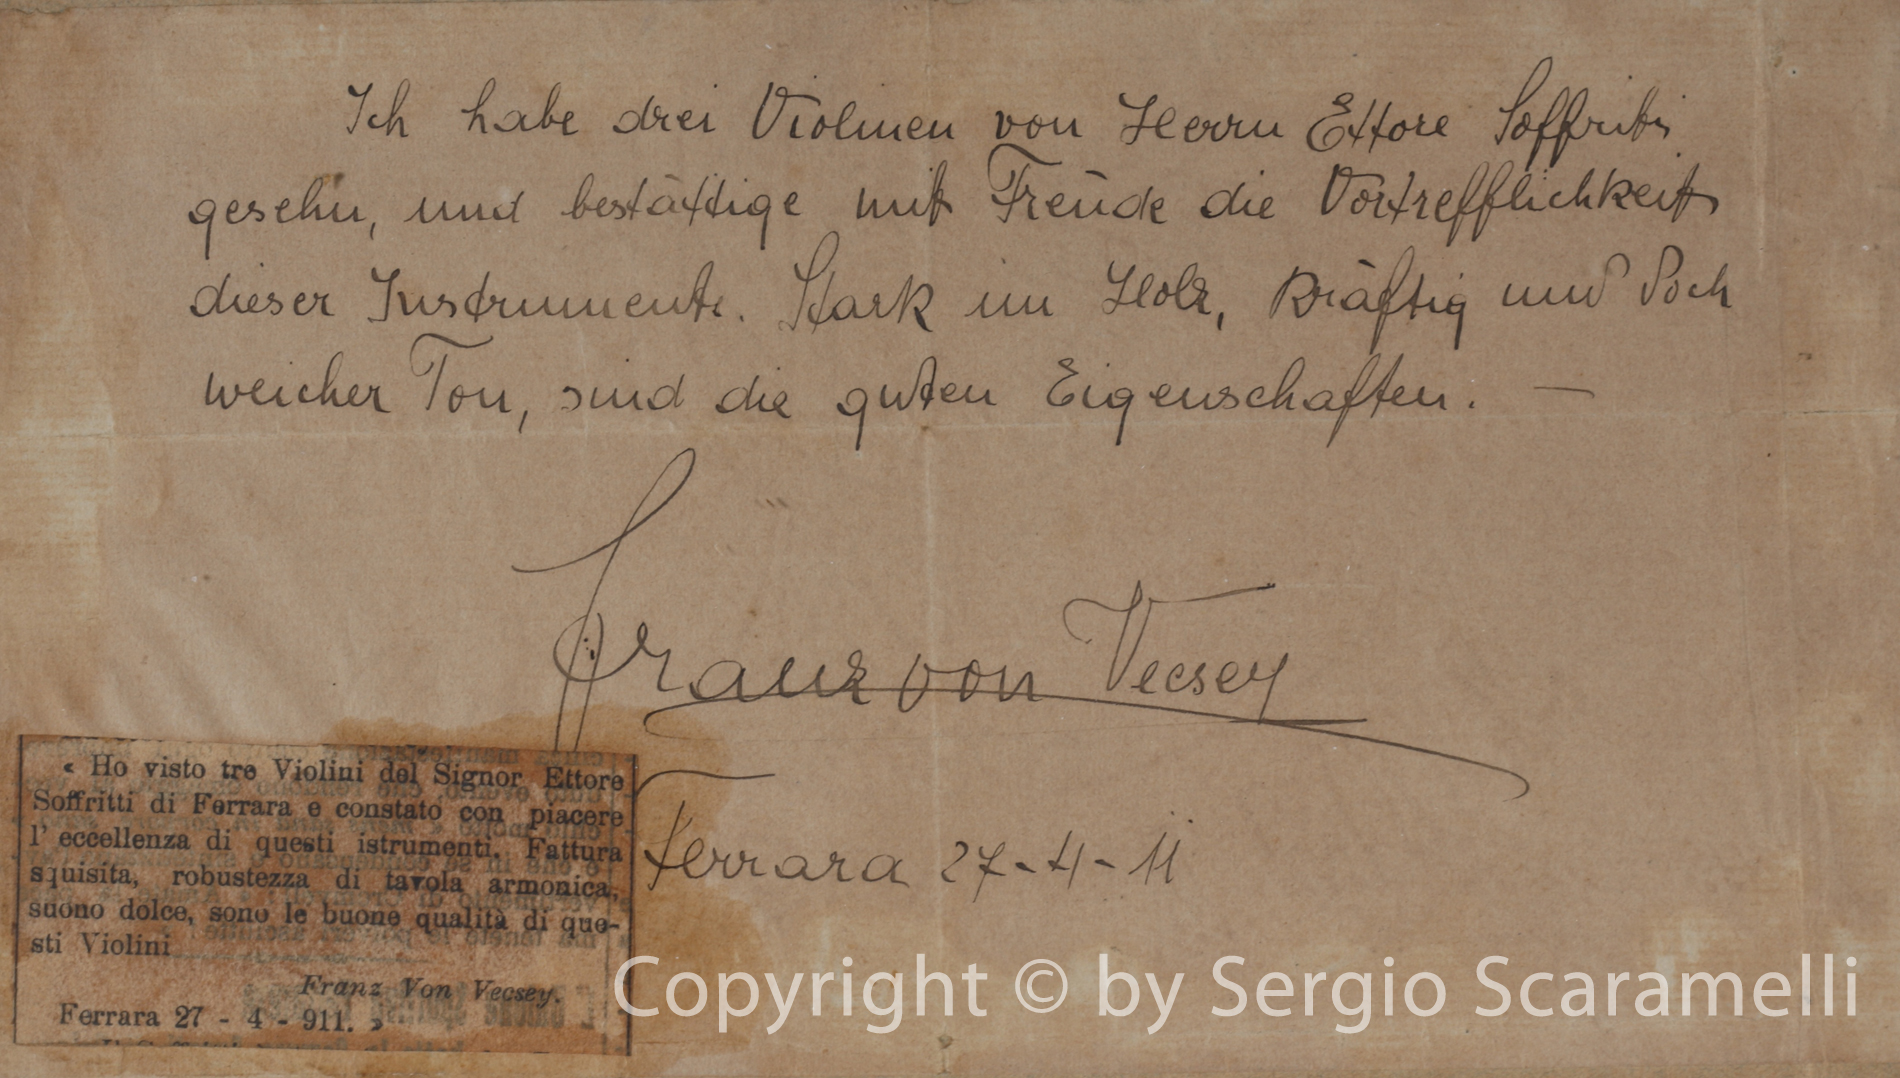 Ich habe drei Violinen von Herrn Ettore Soffritti
gesehn, und bestättige mit Freude die Vortrefflichkeit
dieser Instrumente. Stark im Holz, kräftig und doch
weicher Ton, sind die guten Eigenschaften. —
Franz von Vecsey
Ferrara 27-4-11
« Ho visto tre Violini del Signor Ettore
Soffritti di Ferrara e constato con piacere
l' eccellenza di questi istrumenti. Fattura
squisita, robustezza di tavola armonica,
suono dolce, sono le buone qualità di que-
sti Violini
Franz Von Vecsey.
Ferrara 27 - 4 - 911. »
Copyright © by Sergio Scaramelli